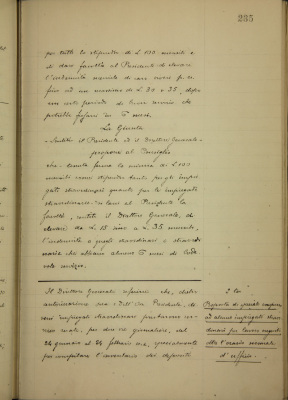 235
per tutti lo stipendio di L. 100 mensili e
di dare facoltà al Presidente di elevare
l'indennità mensile di
fino ad un massimo di L. 30 e 35, dopo
un periodo di buon servizio che
potrebbe fissarsi in 6 mesi.
La Giunta
Sentiti il Presidente ed il Direttore Generale
propone al Consiglio
che tenuta ferma la misura di L. 100
mensili come stipendio tanto per gli impie
gati straordinari quanto per le impiegate
straordinarie si lasci al Presidente la
facoltà, sentito il Direttore Generale, di
elevare da L. 15 sino a L. 35 mensili,
l'indennità a quegli straordinari e straordi
narie che abbiano almeno 6 mesi di lode
vole servizio.
Il Direttore Generale riferisce che, dietro
autorizzazione del Presidente, al
cuni impiegati straordinari prestarono ser
vizio serale, per due ore giornaliere, dal
24 gennaio al 24 febbraio
per compilare l'inventario dei depositi
Proposta di speciale compenso
ad alcuni impiegati straor
dinari per lavori eseguiti
oltre l'orario normale
d'ufficio.